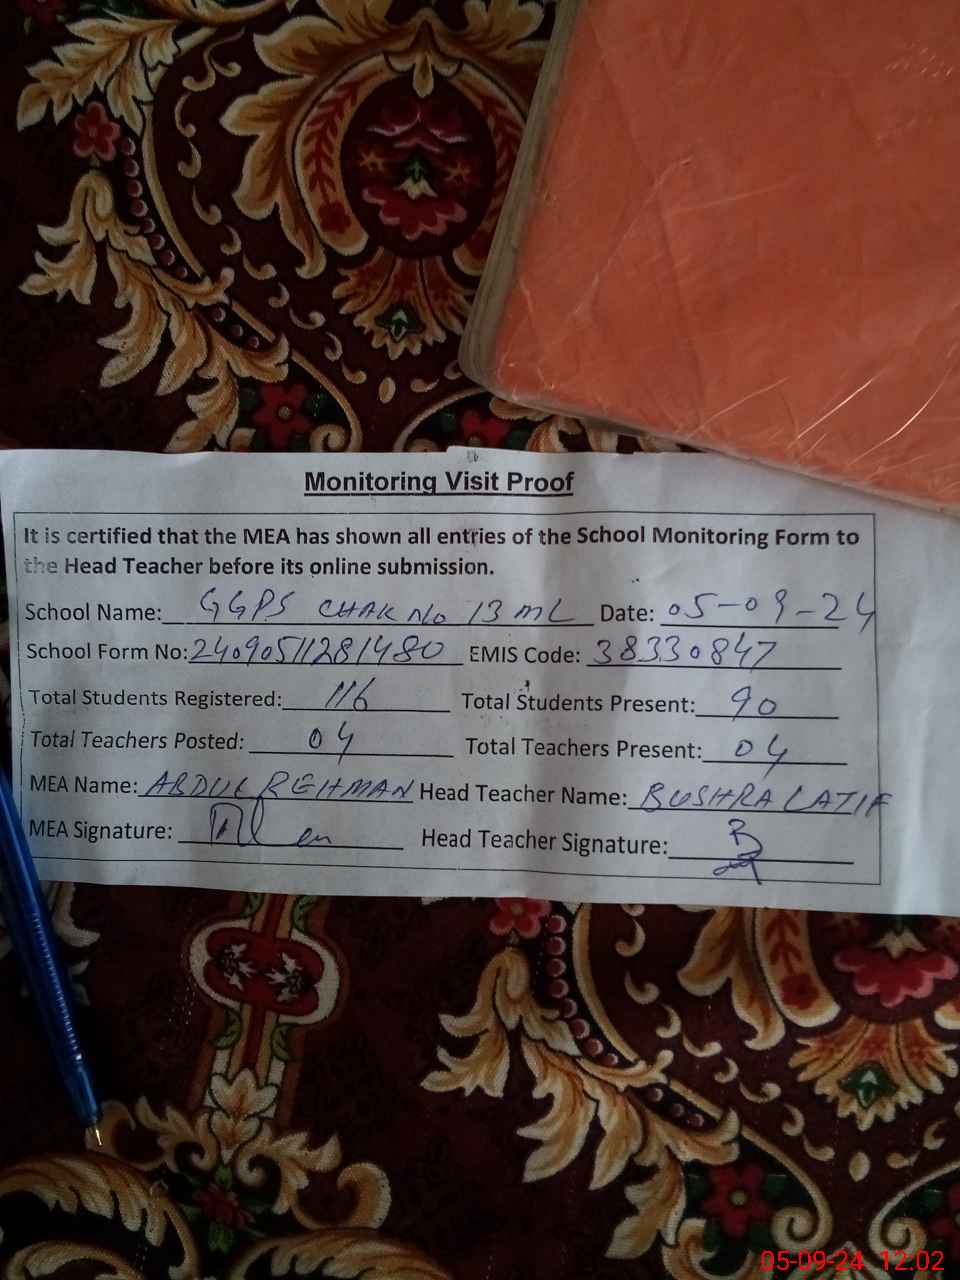 Monitoring Visit Proof
It is certified that the MEA has shown all entries of the School Monitoring Form to
the Head Teacher before its online submission.
School Name: GGPS CHAK No 13 ML Date: 05-09-24
School Form No: 24090511281480 EMIS Code: 38330847
Total Students Registered: 116 Total Students Present: 90
Total Teachers Posted: 04 Total Teachers Present: 04
MEA Name: ABDUL REHMAN Head Teacher Name: BUSHRA LATIF
MEA Signature: Head Teacher Signature:
05-09-24 12.02